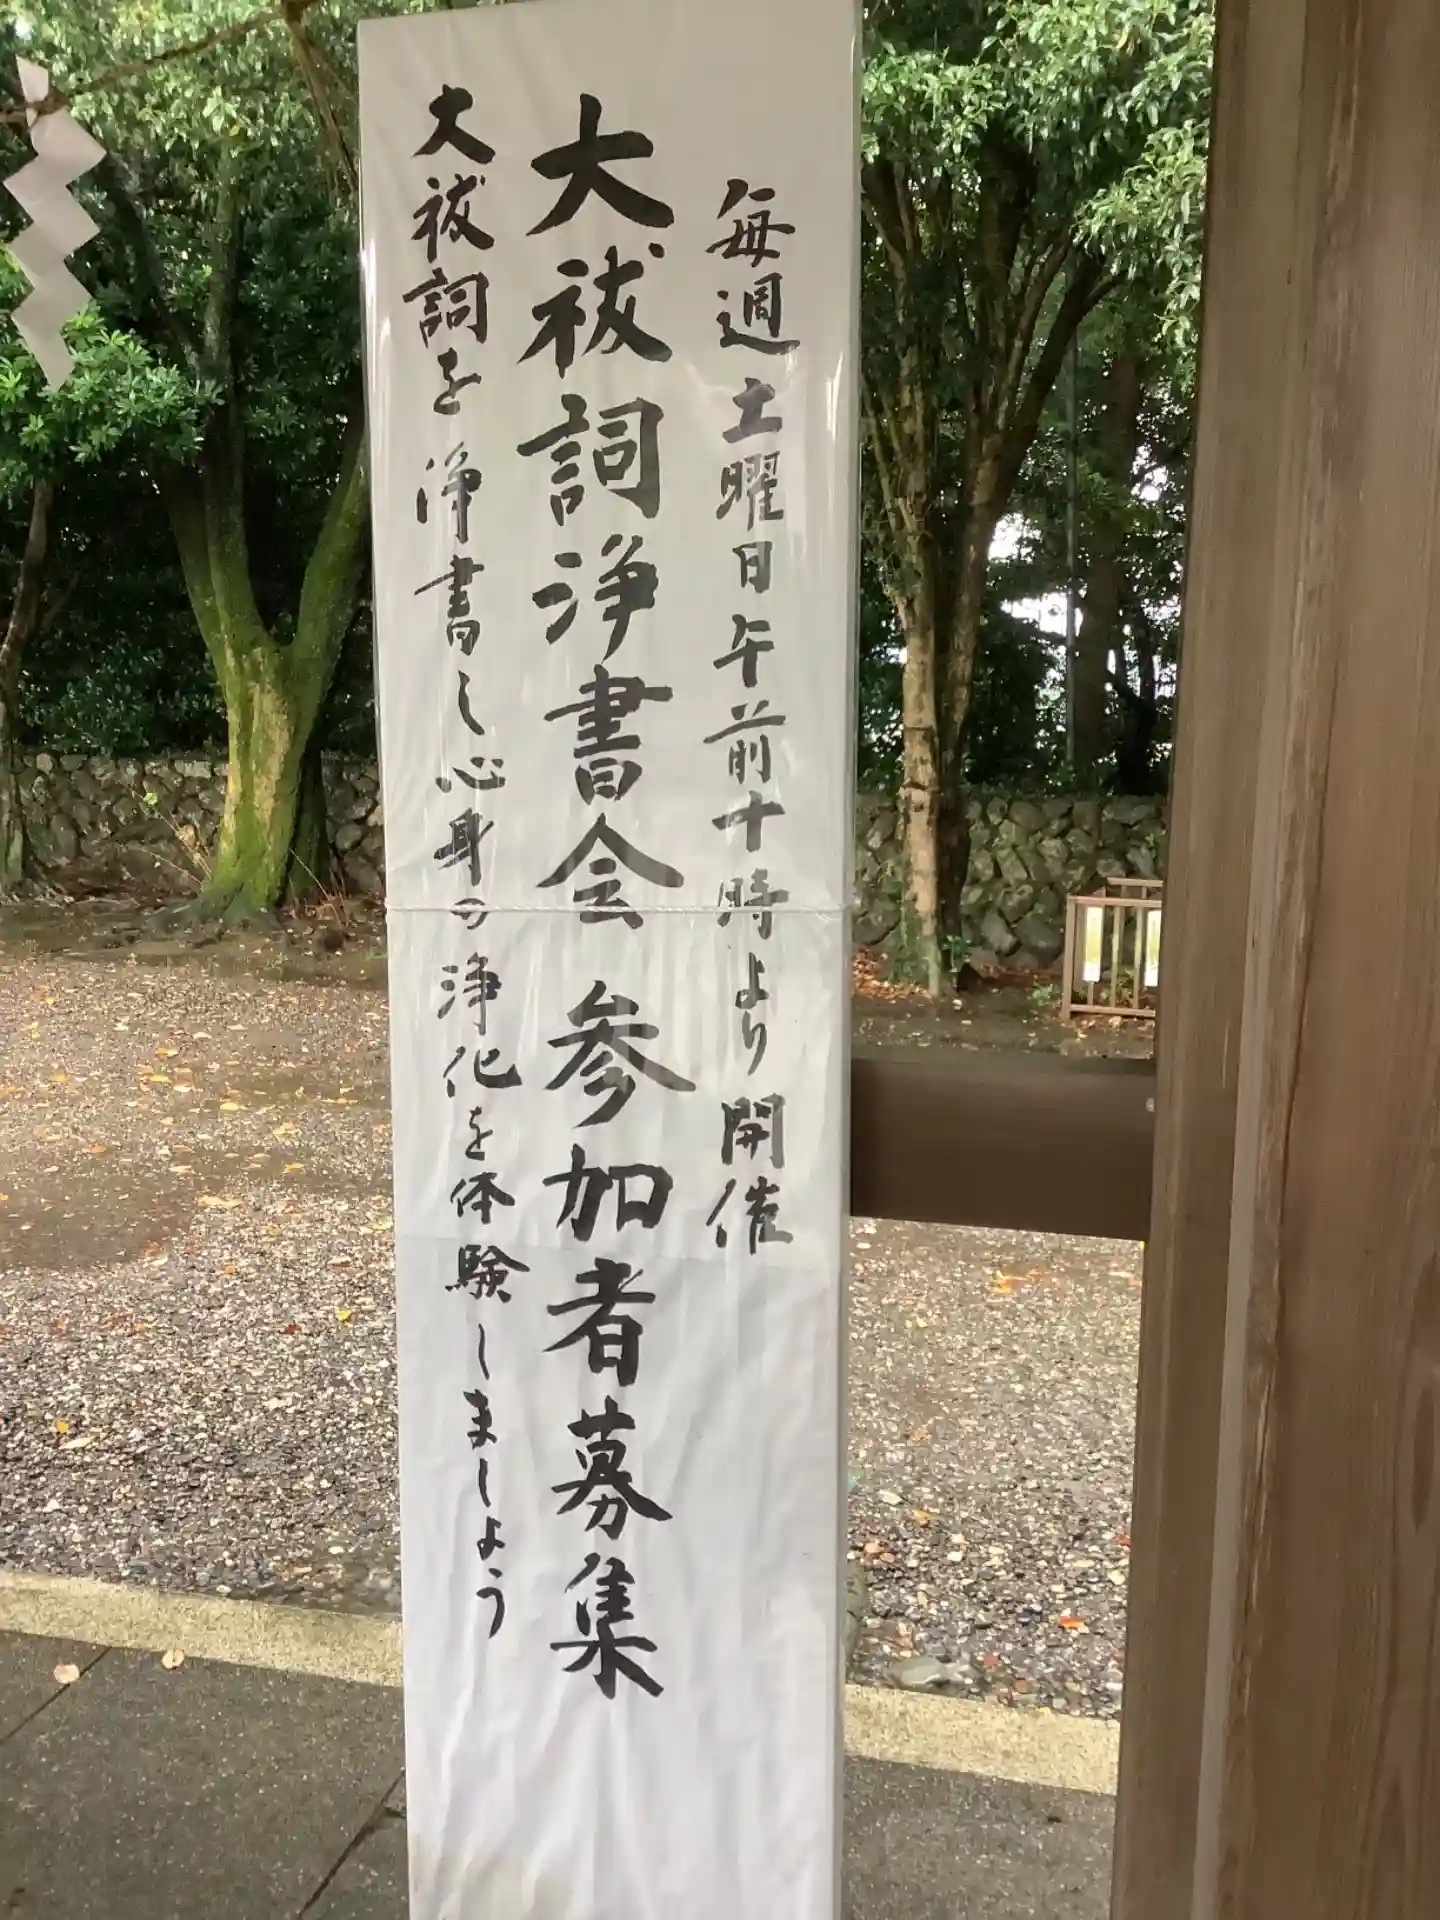 毎週土曜日午前十時より開催
大祓詞浄書会 参加者募集
大祓詞を浄書し心身の浄化を体験しましょう